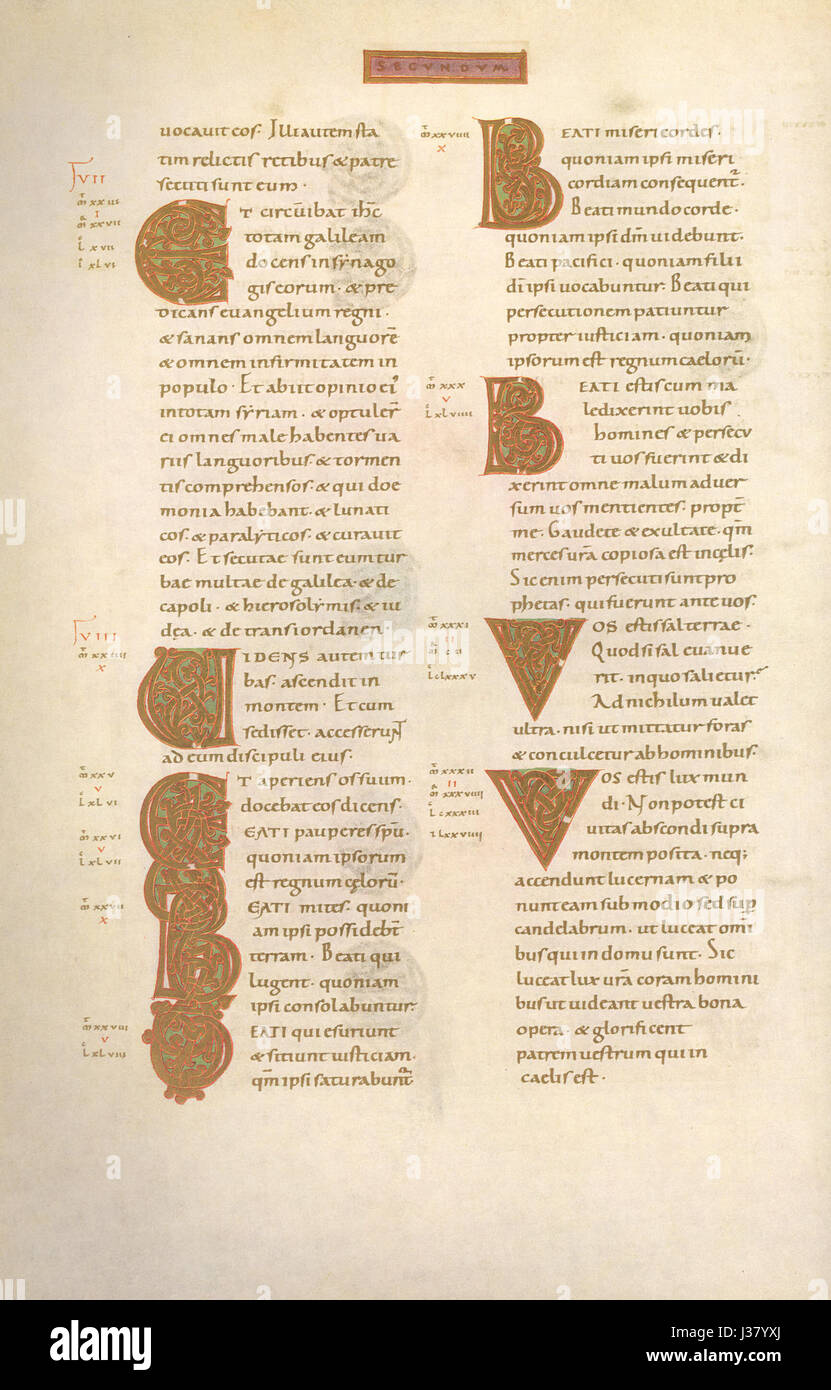 SECUNDUM
uocauit eos· Illi autem sta
tim relictis retibus & patre
secuti sunt eum·
VII
ET circūibat ihc̄
totam galileam
docens in synago
gis eorum· & pre
dicans euangelium regni·
& sanans omnem languorē
& omnem infirmitatem in
populo· Et abiit opinio ei'
in totam syriam· & optuler̄
ei omnes male habentes ua
riis languoribus & tormen
tis comprehensos· & qui doe
monia habebant· & lunati
cos· & paralyticos· & curauit
eos· Et secutae sunt eum tur
bae multae de galilea· & de
capoli· & hierosolymis· & iu
dęa· & de trans iordanen·
VIII
UIDENS autem tur
bas· ascendit in
montem· Et cum
sedisset· accesserunt
ad eum discipuli eius·
ET aperiens os suum·
docebat eos dicens·
BEATI pauperes spū·
quoniam ipsorum
est regnum cęlorū·
BEATI mites· quoni
am ipsi possidebt̄
terram· Beati qui
lugent· quoniam
ipsi consolabuntur·
BEATI qui esuriunt
& sitiunt iusticiam·
qm̄ ipsi saturabunt̄·
BEATI misericordes·
quoniam ipsi miseri
cordiam consequent̄·
Beati mundo corde·
quoniam ipsi dm̄ uidebunt·
Beati pacifici· quoniam filii
dī ipsi uocabuntur· Beati qui
persecutionem patiuntur
propter iusticiam· quoniam
ipsorum est regnum caelorū·
BEATI estis cum ma
ledixerint uobis
homines & persecu
ti uos fuerint & di
xerint omne malum aduer
sum uos mentientes· propt̄
me· Gaudete & exultate· qm̄
merces ur̄a copiosa est in cęlis·
Sic enim persecuti sunt pro
phetas· qui fuerunt ante uos·
VOS estis sal terrae·
Quod si sal euanue
rit· in quo salietur·
Ad nichilum ualet
ultra· nisi ut mittatur foras
& conculcetur ab hominibus·
VOS estis lux mun
di· Non potest ci
uitas abscondi supra
montem posita· neq;
accendunt lucernam & po
nunt eam sub modio sed sup̄
candelabrum· ut luceat om̄i
bus qui in domu sunt· Sic
luceat lux ur̄a coram homini
bus ut uideant uestra bona
opera· & glorificent
patrem uestrum qui in
caelis est·
alamy
Image ID: J37YXJ
www.alamy.com